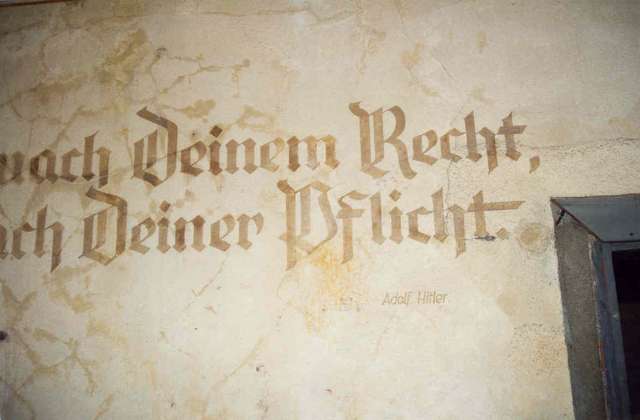 nach Deinem Recht,
nach Deiner Pflicht.
Adolf Hitler